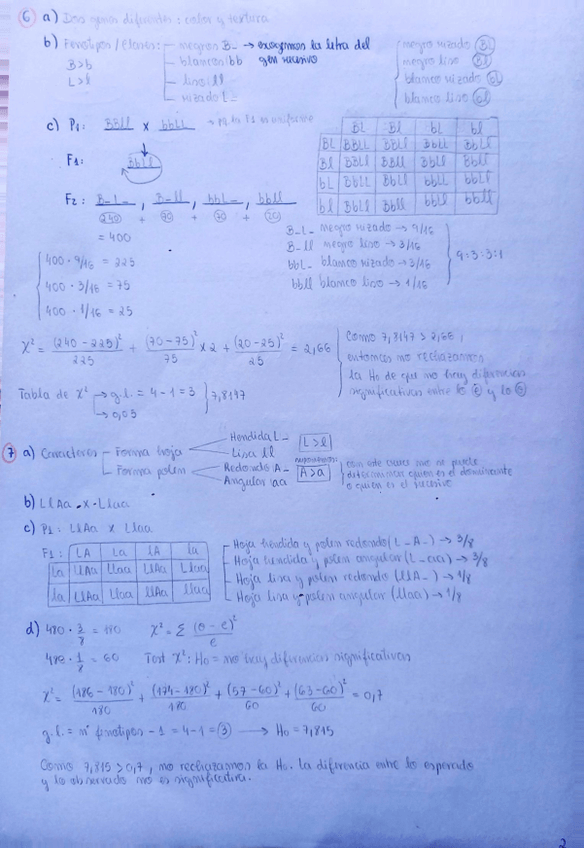 6 a) Dos genes diferentes: color y textura
b) Fenotipos / Clases: negros B_ → escogemos la letra del gen recesivo
B>b
L>l
blancos bb
liso ll
rizado L_
negro rizado BL
negro liso Bl
blanco rizado bL
blanco liso bl
c) P1: BBll x bbLL → F1 es uniforme
F1: BbLl
F2: B_L_, B_ll, bbL_, bbll
240 + 70 + 70 + 20
= 400
BL Bl bL bl
BL BBLL BBLl BbLL BbLl
Bl BBLl BBll BbLl Bbll
bL BbLL BbLl bbLL bbLl
bl BbLl Bbll bbLl bbll
B_L_ negro rizado → 9/16
B_ll negro liso → 3/16
bbL_ blanco rizado → 3/16
bbll blanco liso → 1/16
9:3:3:1
400 · 9/16 = 225
400 · 3/16 = 75
400 · 1/16 = 25
X² = (240-225)²/225 + (70-75)²/75 x 2 + (20-25)²/25 = 2,66
Como 7,8147 > 2,66,
entonces no rechazamos
la H0 de que no hay diferencias
significativas entre lo e y lo o
Tabla de X² → g.l. = 4-1 = 3
→ 0,05
7,8147
7 a) Caracteres - Forma hoja
Hendida L_
Lisa ll
L>l
- Forma polen
Redondo A_
Angular aa
suponemos:
A>a
con este cruce no se puede
determinar quien es el dominante
o quien es el recesivo
b) LlAa x Llaa
c) P1: LlAa x Llaa
F1: LA La lA la
La LLAa LLaa LlAa Llaa
la LlAa Llaa llAa llaa
Hoja hendida y polen redondo (L_A_) → 3/8
Hoja hendida y polen angular (L_aa) → 3/8
Hoja lisa y polen redondo (llA_) → 1/8
Hoja lisa y polen angular (llaa) → 1/8
d) 480 · 3/8 = 180 X² = Σ (o-e)²/e
480 · 1/8 = 60 Test X²: H0 = no hay diferencias significativas
X² = (186-180)²/180 + (174-180)²/180 + (57-60)²/60 + (63-60)²/60 = 0,7
g.l. = nº fenotipos - 1 = 4-1 = 3 → H0 = 7,815
Como 7,815 > 0,7, no rechazamos la H0. La diferencia entre lo esperado
y lo observado no es significativa.
2